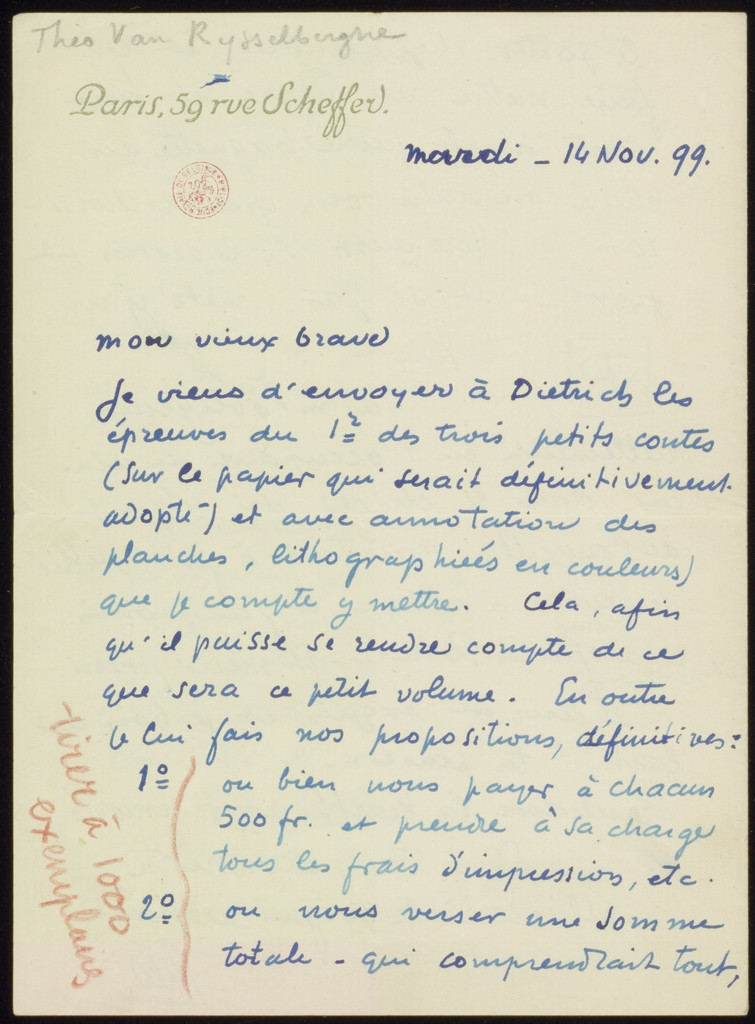 Théo Van Rysselberghe
Paris, 59 rue Scheffer.
mardi – 14 Nov. 99.
mon vieux brave
Je viens d'envoyer à Dietrich les
épreuves du 1r des trois petits contes
(sur le papier qui serait définitivement
adopté) et avec annotation des
planches, lithographiées en couleurs,
que je compte y mettre. Cela, afin
qu'il puisse se rendre compte de ce
que sera ce petit volume. En outre
je lui fais nos propositions, définitives:
1º ou bien nous payer à chacun
500 fr. et prendre à sa charge
tous les frais d'impression, etc.
2º ou nous verser une somme
totale – qui comprendrait tout,
tirer à 1000
exemplaires